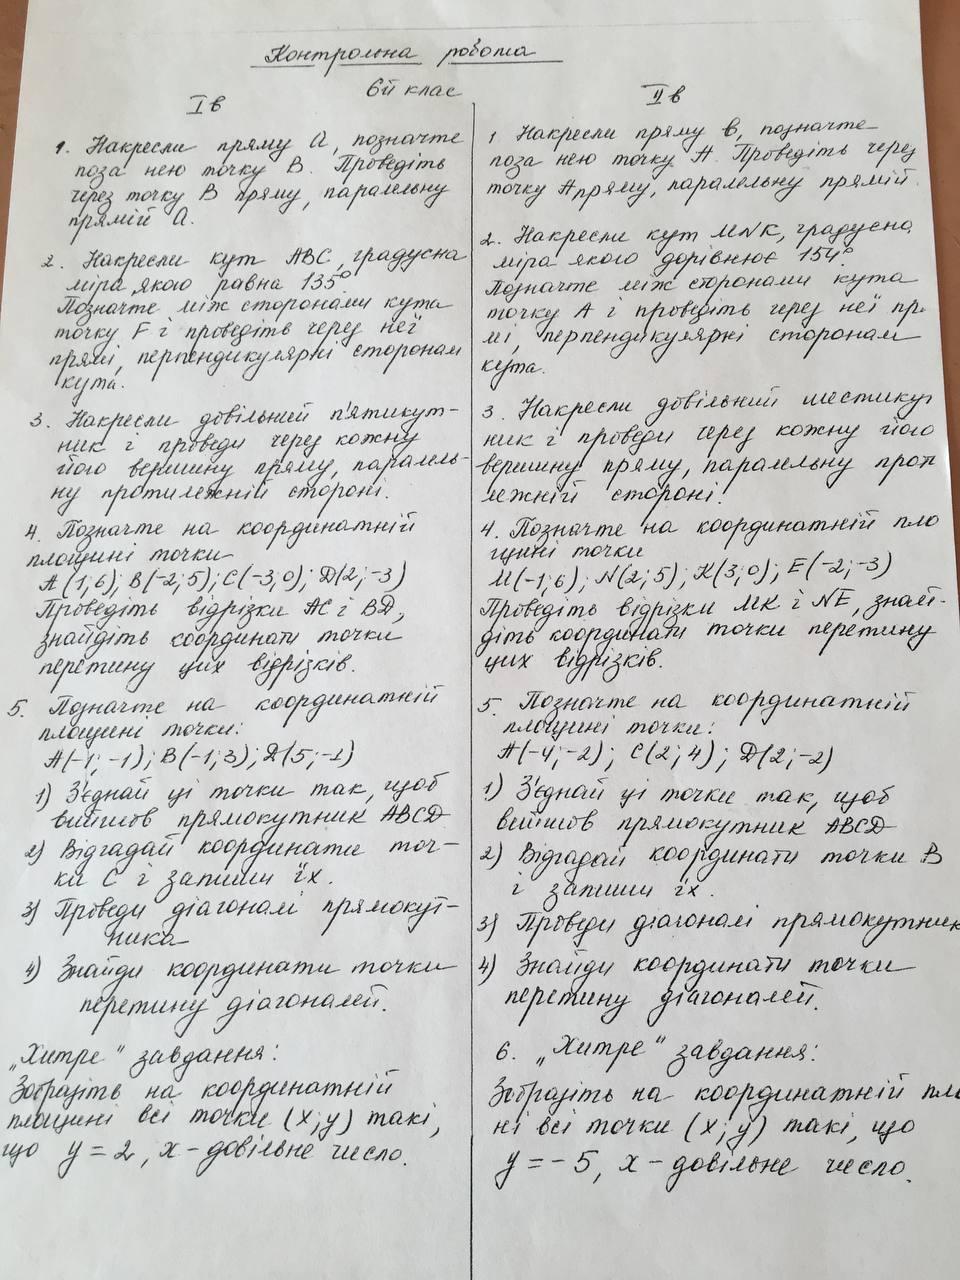 Контрольна робота
6й клас
I в
1. Накресли пряму a, позначте
поза нею точку B. Проведіть
через точку B пряму, паралельну
прямій a.
2. Накресли кут ABC, градусна
міра якого равна 135°
Позначте між сторонами кута
точку F і проведіть через неї
прямі, перпендикулярні сторонам
кута.
3. Накресли довільний п'ятикут-
ник і проведи через кожну
його вершину пряму, паралель-
ну протилежній стороні.
4. Позначте на координатній
площині точки
A(1;6); B(-2;5); C(-3;0); D(2;-3)
Проведіть відрізки AC і BD,
знайдіть координати точки
перетину цих відрізків.
5. Позначте на координатній
площині точки:
A(-1;-1); B(-1;3); D(5;-1)
1) З'єднай ці точки так, щоб
вийшов прямокутник ABCD
2) Відгадай координати точ-
ки C і запиши їх.
3) Проведи діагоналі прямокут-
ника
4) Знайди координати точки
перетину діагоналей.
„Хитре" завдання:
Зобразіть на координатній
площині всі точки (x;y) такі,
що y = 2, x - довільне число.
II в
1 Накресли пряму в, позначте
поза нею точку A. Проведіть через
точку A пряму, паралельну прямій
2. Накресли кут MNK, градусна
міра якого дорівнює 154°.
Позначте між сторонами кута
точку A і проведіть через неї пр
мі, перпендикулярні сторонам
кута.
3. Накресли довільний шестикут
ник і проведи через кожну його
вершину пряму, паралельну проти
лежній стороні.
4. Позначте на координатній пло
щині точки
M(-1;6); N(2;5); K(3;0); E(-2;-3)
Проведіть відрізки MK і NE, знай-
діть координати точки перетину
цих відрізків.
5. Позначте на координатній
площині точки:
A(-4;-2); C(2;4); D(2;-2)
1) З'єднай ці точки так, щоб
вийшов прямокутник ABCD
2) Відгадай координати точки B
і запиши їх.
3) Проведи діагоналі прямокутник
4) Знайди координати точки
перетину діагоналей.
6. „Хитре" завдання:
Зобразіть на координатній пло
ні всі точки (x;y) такі, що
y = -5, x - довільне число.